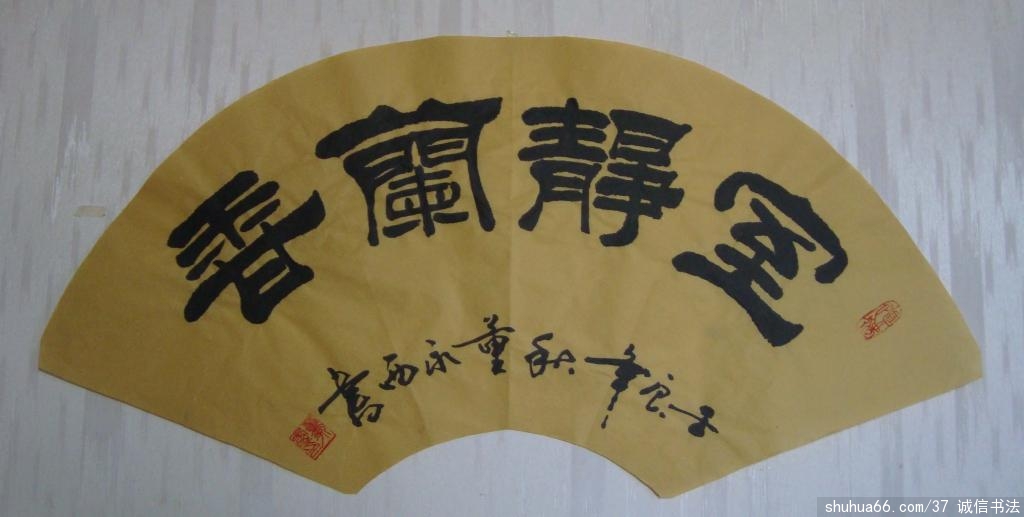 室靜蘭香
子辰年秋董永西書
shuhua66.com/37 诚信书法